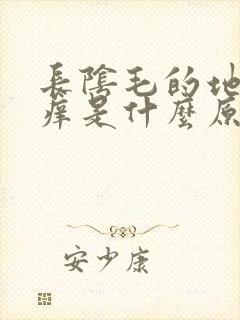 長陰毛的地
痒是什麼原
安少康